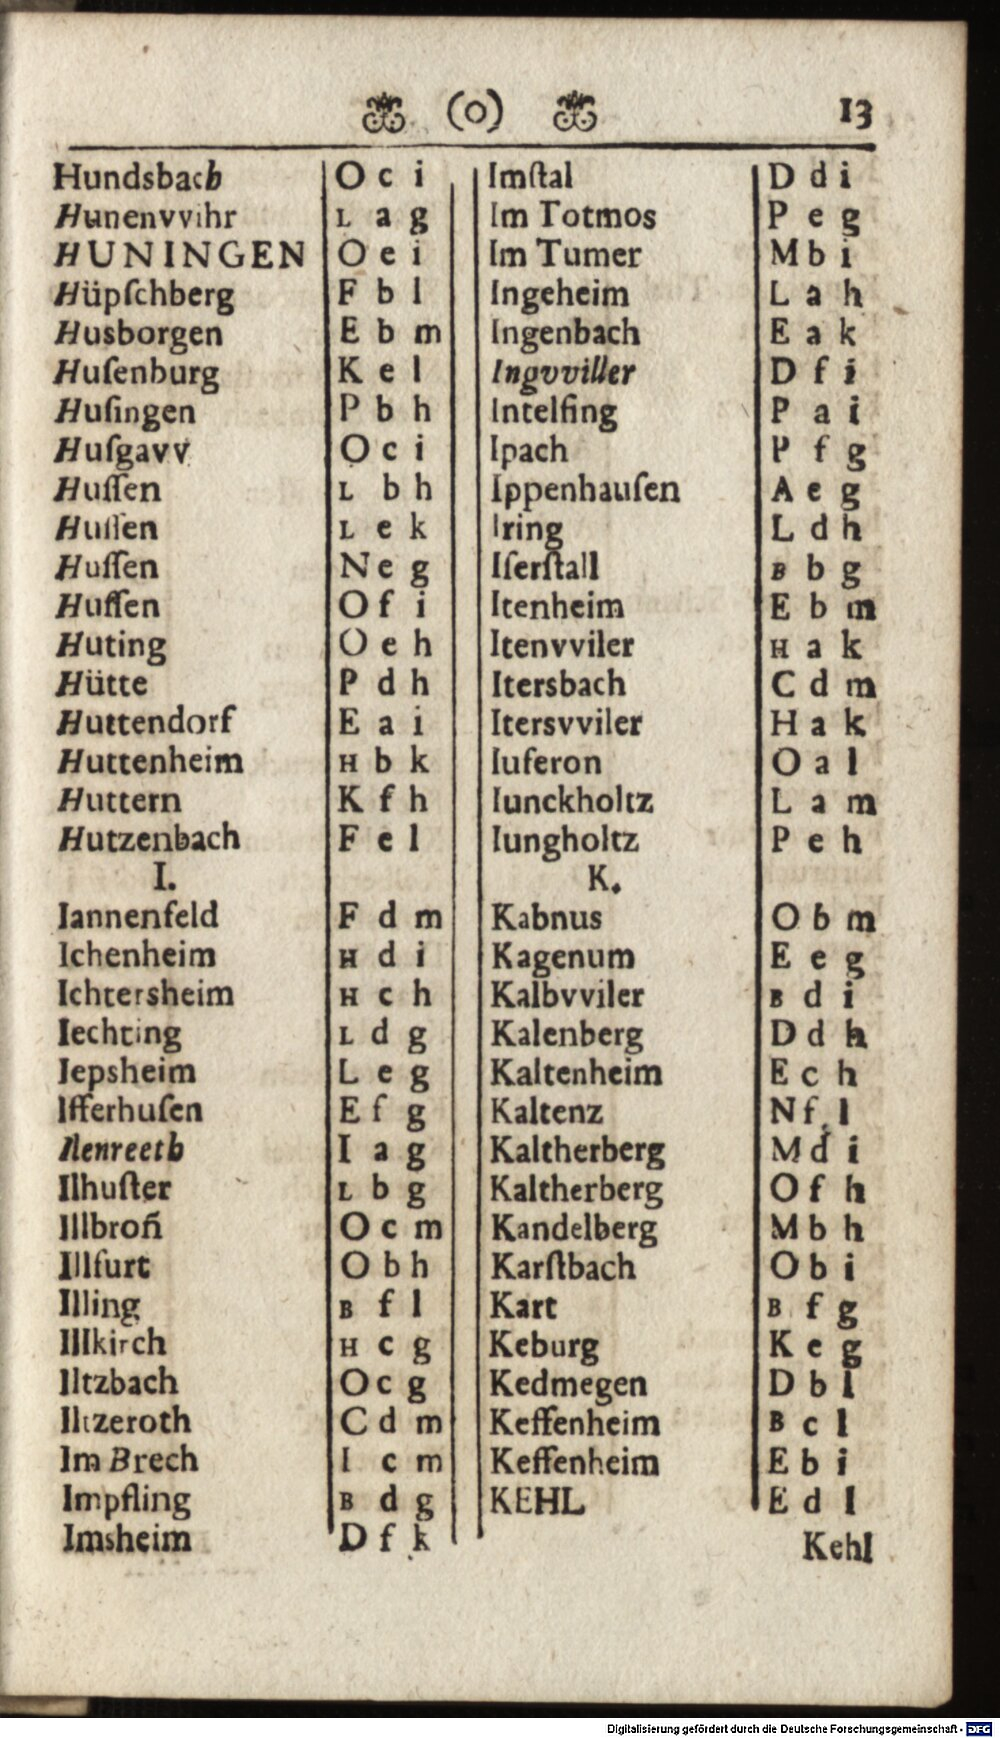 (0) 13
Hundsbach O c i
Hunenvvihr L a g
HUNINGEN O e i
Hüpſchberg F b l
Husborgen E b m
Huſenburg K e l
Huſingen P b h
Huſgavv O c i
Huſſen L b h
Huſſen L e k
Huſſen N e g
Huſſen O f i
Huting O e h
Hütte P d h
Huttendorf E a i
Huttenheim H b k
Huttern K f h
Hutzenbach F e l
I.
Iannenfeld F d m
Ichenheim H d i
Ichtersheim H c h
Iechting L d g
Iepsheim L e g
Ifferhuſen E f g
Ilenreeth I a g
Ilhuſter L b g
Illbron̄ O c m
Illfurt O b h
Illing B f l
Illkirch H c g
Iltzbach O c g
Iltzeroth C d m
Im Brech I c m
Impfling B d g
Imsheim D f k
Imſtal D d i
Im Totmos P e g
Im Tumer M b i
Ingeheim L a h
Ingenbach E a k
Ingvviller D f i
Intelfing P a i
Ipach P f g
Ippenhauſen A e g
Iring L d h
Iſerſtall B b g
Itenheim E b m
Itenvviler H a k
Itersbach C d m
Itersvviler H a k
Iuferon O a l
Iunckholtz L a m
Iungholtz P e h
K.
Kabnus O b m
Kagenum E e g
Kalbvviler B d i
Kalenberg D d h
Kaltenheim E c h
Kaltenz N f l
Kaltherberg M d i
Kaltherberg O f h
Kandelberg M b h
Karſtbach O b i
Kart B f g
Keburg K e g
Kedmegen D b l
Keffenheim B c l
Keffenheim E b i
KEHL E d l
Kehl
Digitalisierung gefördert durch die Deutsche Forschungsgemeinschaft - DFG